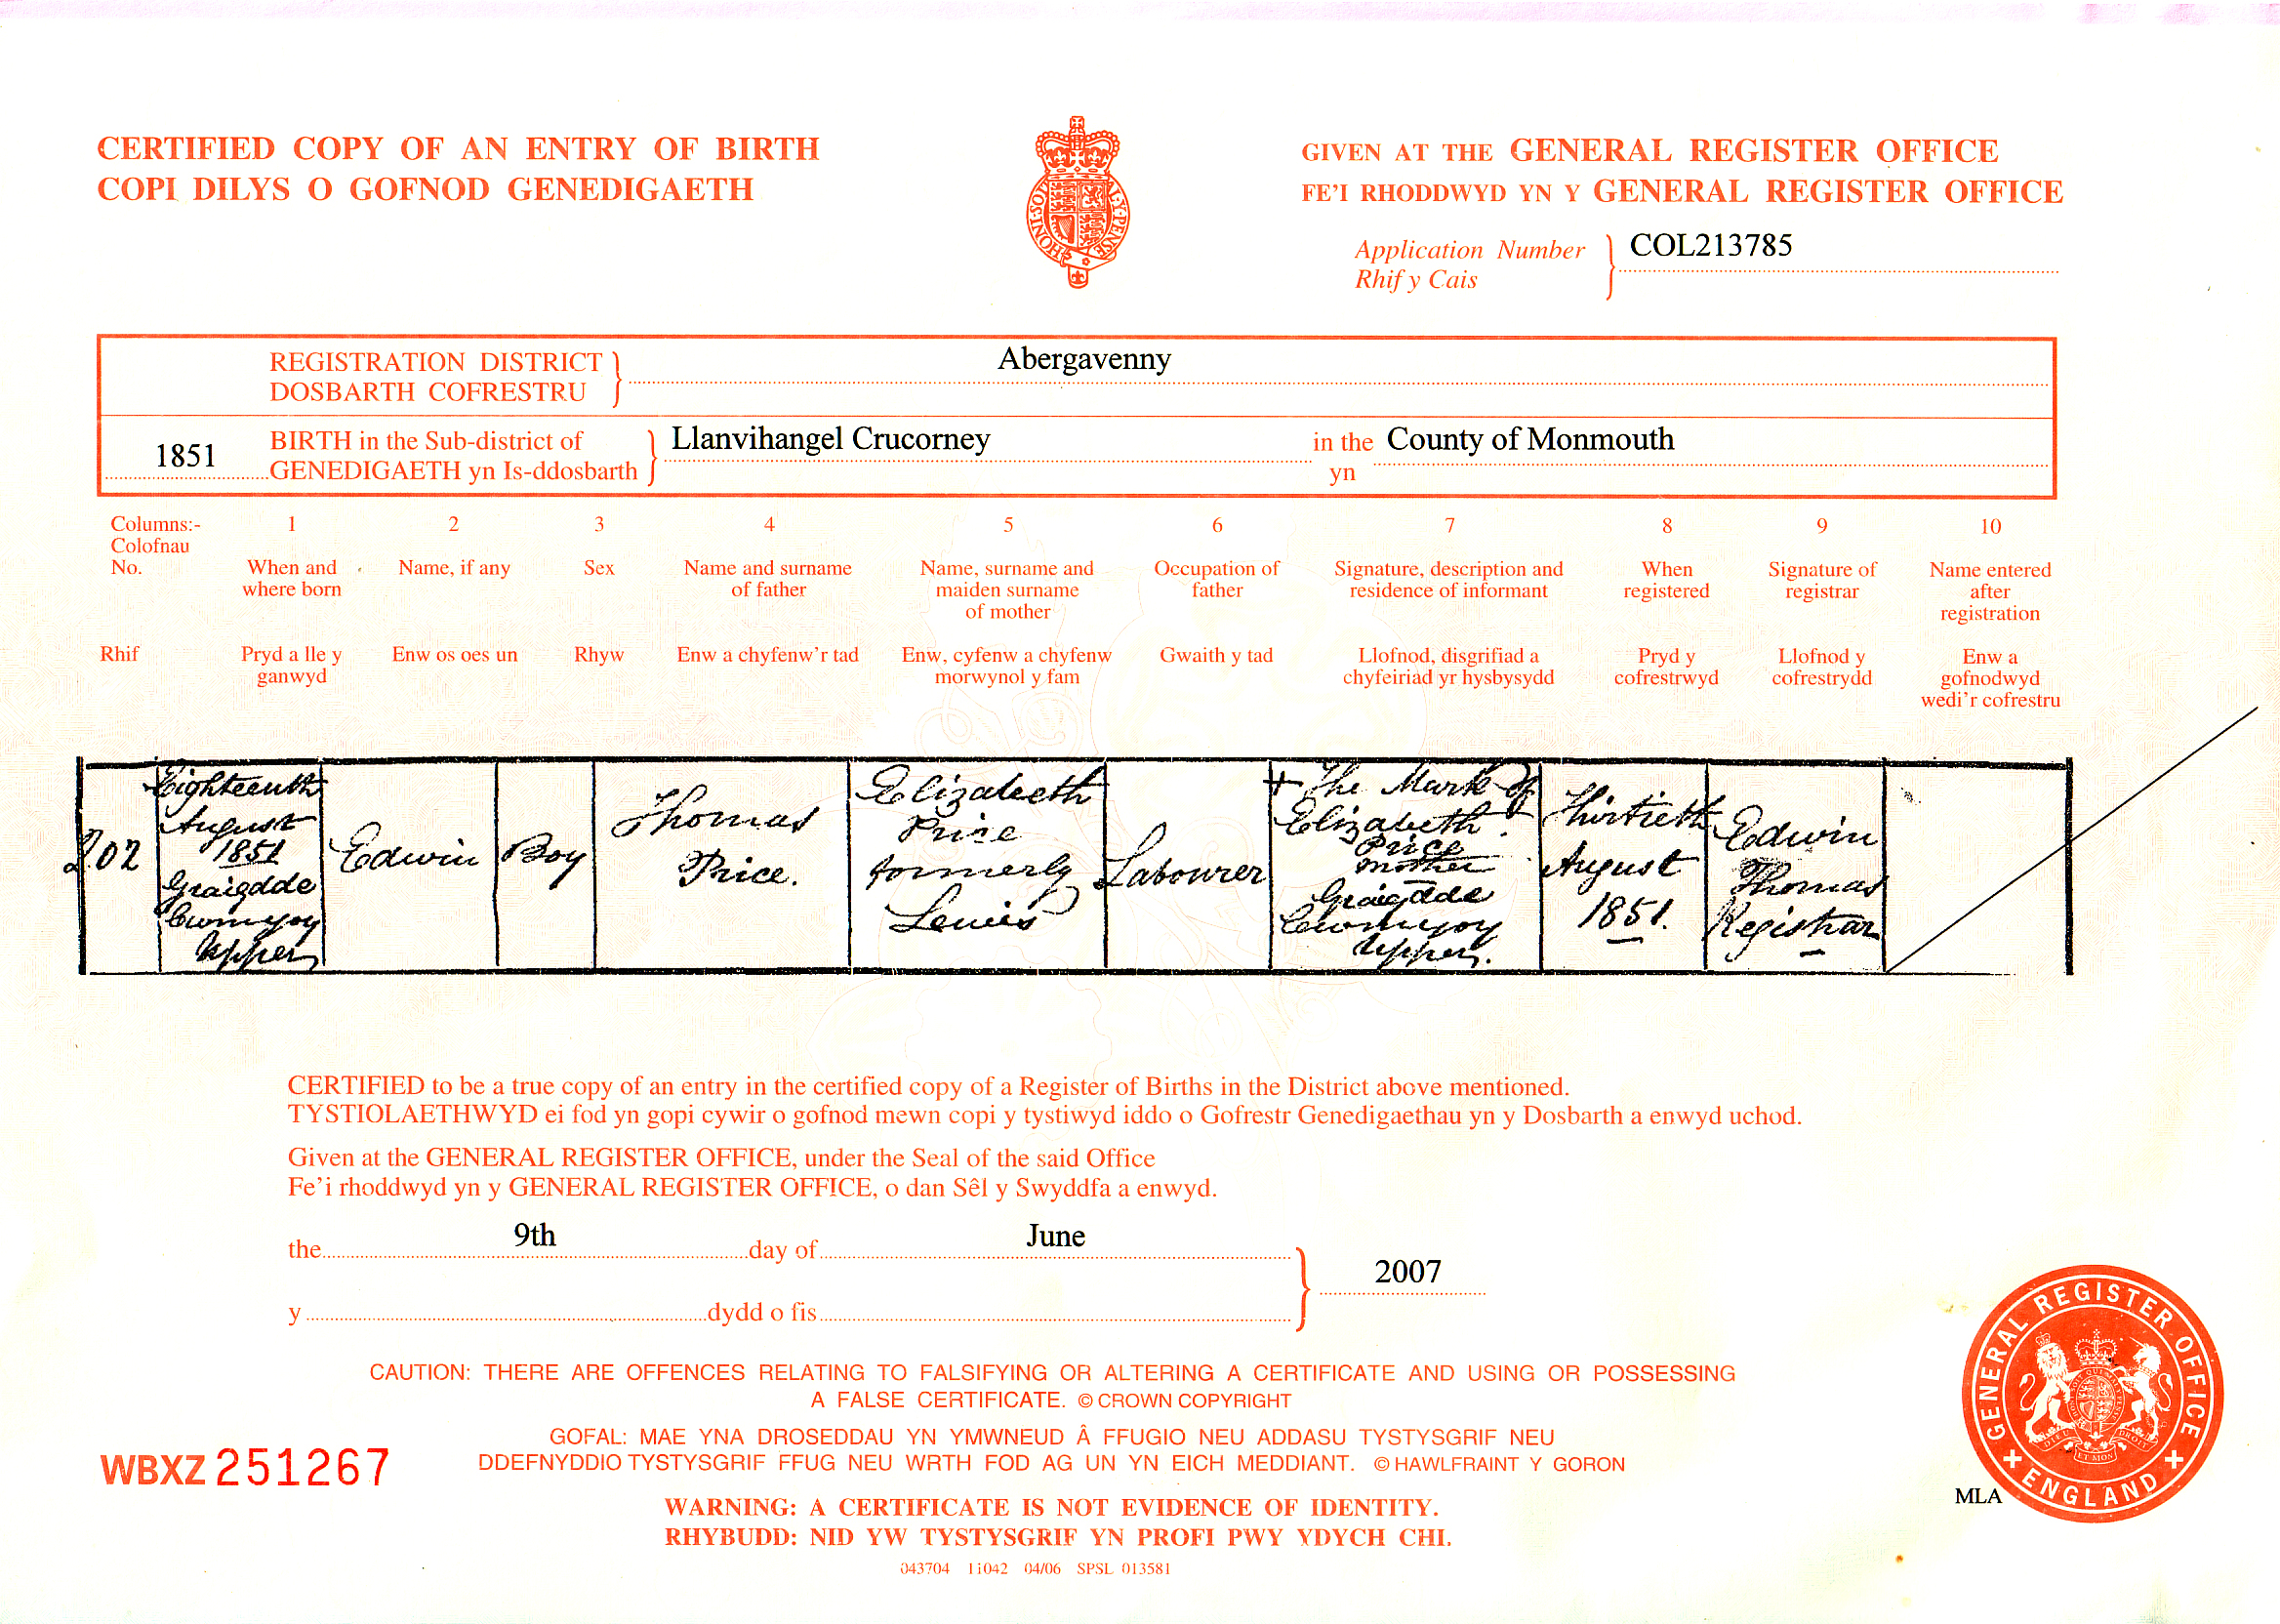 CERTIFIED COPY OF AN ENTRY OF BIRTH
COPI DILYS O GOFNOD GENEDIGAETH
HONI·SOIT
AL·Y·PENSE
GIVEN AT THE GENERAL REGISTER OFFICE
FE'I RHODDWYD YN Y GENERAL REGISTER OFFICE
Application Number
Rhif y Cais
COL213785
REGISTRATION DISTRICT
DOSBARTH COFRESTRU
Abergavenny
1851
BIRTH in the Sub-district of
GENEDIGAETH yn Is-ddosbarth
Llanvihangel Crucorney
in the
yn
County of Monmouth
Columns:- 1 2 3 4 5 6 7 8 9 10
Colofnau
No.
When and
where born
Name, if any
Sex
Name and surname
of father
Name, surname and
maiden surname
of mother
Occupation of
father
Signature, description and
residence of informant
When
registered
Signature of
registrar
Name entered
after
registration
Rhif
Pryd a lle y
ganwyd
Enw os oes un
Rhyw
Enw a chyfenw'r tad
Enw, cyfenw a chyfenw
morwynol y fam
Gwaith y tad
Llofnod, disgrifiad a
chyfeiriad yr hysbysydd
Pryd y
cofrestrwyd
Llofnod y
cofrestrydd
Enw a
gofnodwyd
wedi'r cofrestru
202
Eighteenth
August
1851
Graigdde
Cwmyoy
Upper
Edwin
Boy
Thomas
Price.
Elizabeth
Price
formerly
Lewis
Labourer
+ The Mark of
Elizabeth
Price
mother
Graigdde
Cwmyoy
Upper.
Thirtieth
August
1851.
Edwin
Thomas
Registrar
CERTIFIED to be a true copy of an entry in the certified copy of a Register of Births in the District above mentioned.
TYSTIOLAETHWYD ei fod yn gopi cywir o gofnod mewn copi y tystiwyd iddo o Gofrestr Genedigaethau yn y Dosbarth a enwyd uchod.
Given at the GENERAL REGISTER OFFICE, under the Seal of the said Office
Fe'i rhoddwyd yn y GENERAL REGISTER OFFICE, o dan Sêl y Swyddfa a enwyd.
the 9th day of June
2007
y dydd o fis
CAUTION: THERE ARE OFFENCES RELATING TO FALSIFYING OR ALTERING A CERTIFICATE AND USING OR POSSESSING
A FALSE CERTIFICATE. © CROWN COPYRIGHT
GOFAL: MAE YNA DROSEDDAU YN YMWNEUD Â FFUGIO NEU ADDASU TYSTYSGRIF NEU
DDEFNYDDIO TYSTYSGRIF FFUG NEU WRTH FOD AG UN YN EICH MEDDIANT. © HAWLFRAINT Y GORON
WBXZ 251267
WARNING: A CERTIFICATE IS NOT EVIDENCE OF IDENTITY.
RHYBUDD: NID YW TYSTYSGRIF YN PROFI PWY YDYCH CHI.
043704 11042 04/06 SPSL 013581
MLA
GENERAL REGISTER OFFICE
ENGLAND
DIEU ET MON DROIT